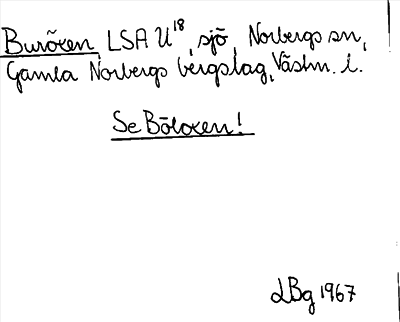 Buröxen, LSA U¹⁸, sjö, Norbergs sn,
Gamla Norbergs bergslag, Västm. l.
Se Böloxen!
LBg 1967